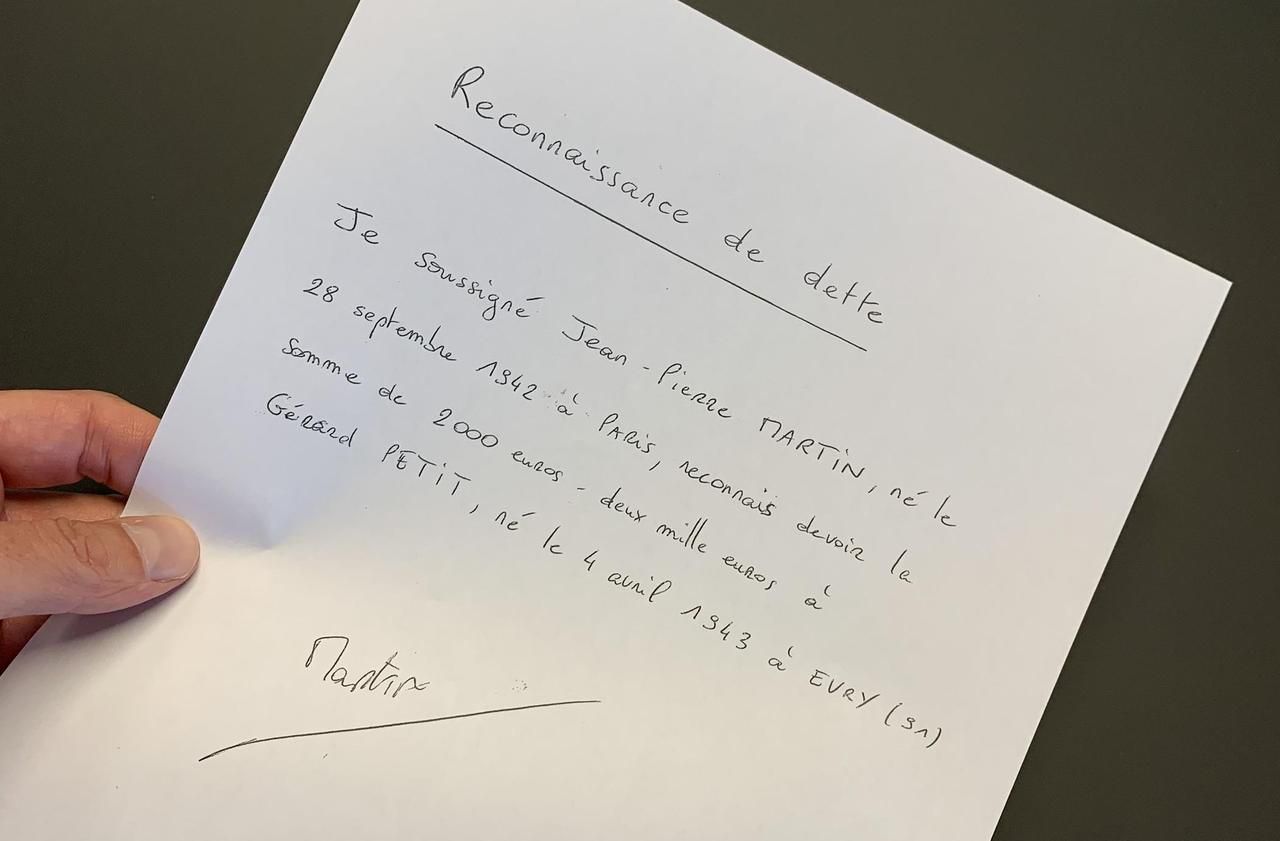 Reconnaissance de dette
Je soussigné Jean-Pierre MARTIN, né le
28 septembre 1942 à PARIS, reconnais devoir la
somme de 2000 euros - deux mille euros, à
Gérard PETIT, né le 4 avril 1943 à EVRY (91)
Martin